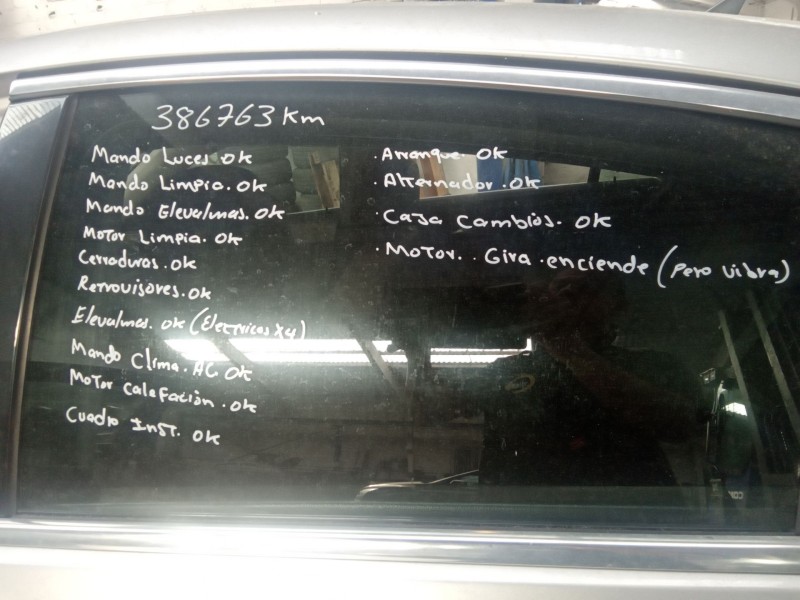 386763 Km
Mando Luces OK
Mando Limpia. OK
Mando Elevalunas. OK
Motor Limpia. OK
Cerraduras. OK
Retrovisores. OK
Elevalunas. OK (Electricos x4)
Mando Clima. AC OK
Motor Calefación. OK
Cuadro Inst. OK
· Arranque OK
· Alternador. OK
· Caja Cambios. OK
· Motor. Gira. enciende (pero vibra)